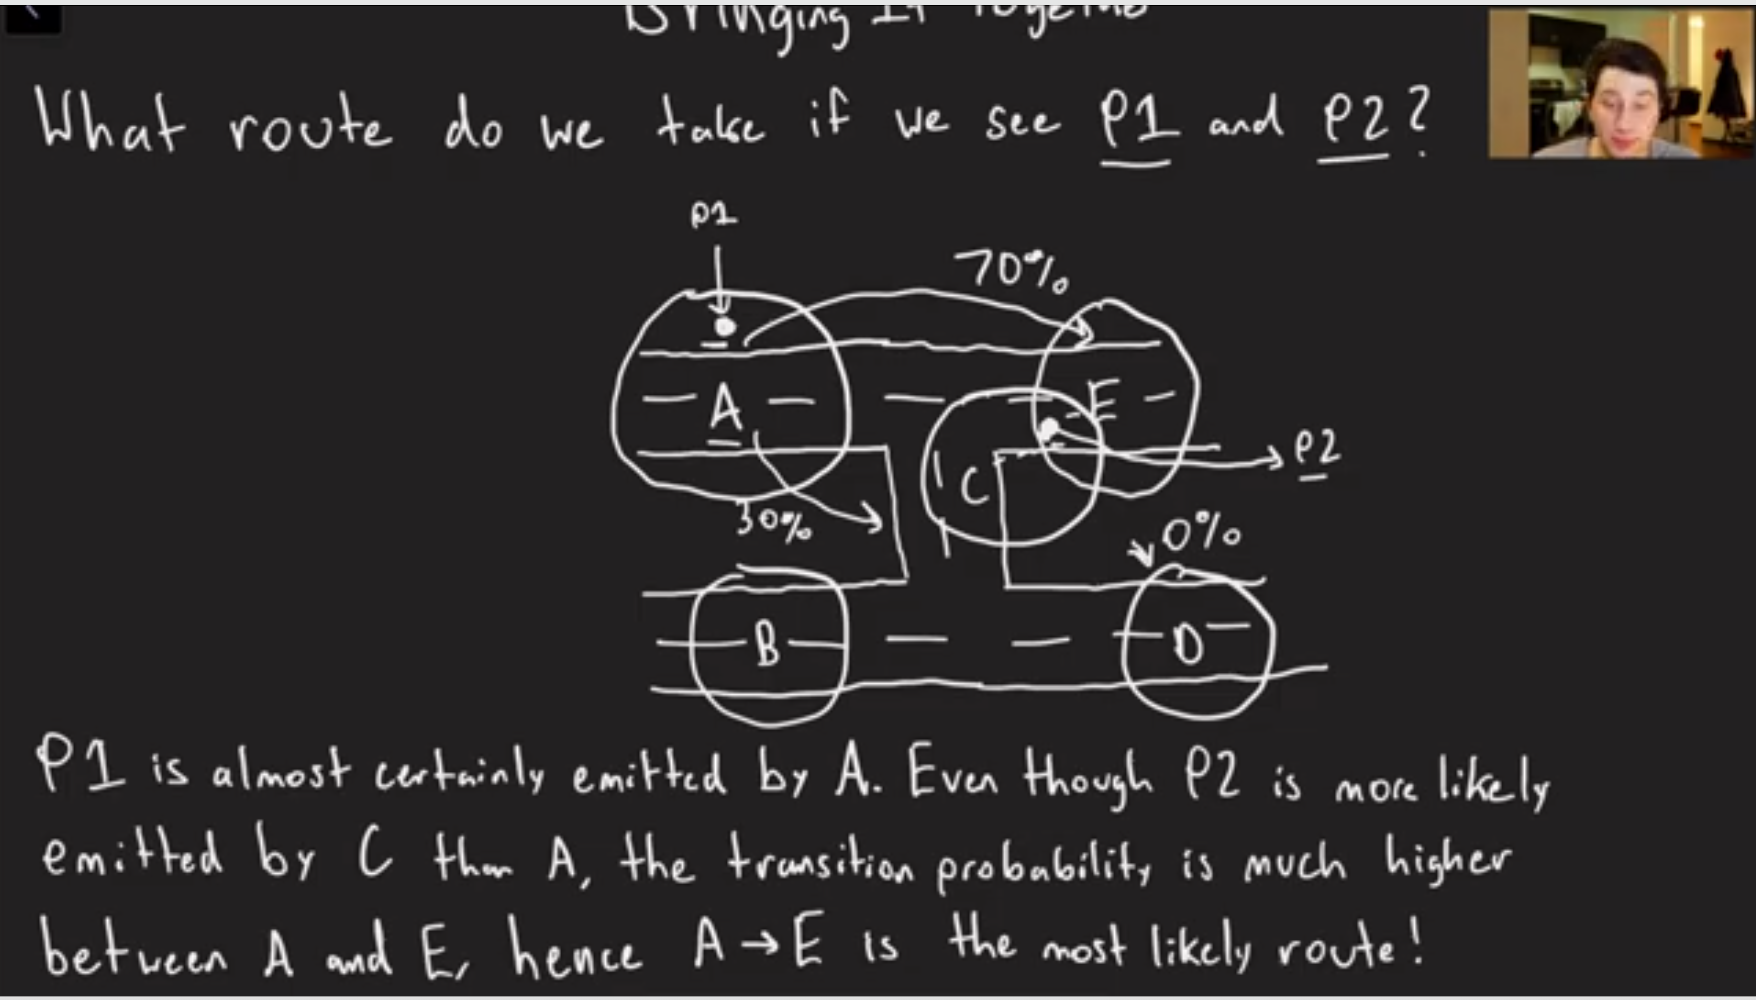 Bringing It Together
What route do we take if we see P1 and P2?
P1
70%
A
E
C
P2
30%
0%
B
D
P1 is almost certainly emitted by A. Even though P2 is more likely
emitted by C than A, the transition probability is much higher
between A and E, hence A → E is the most likely route!